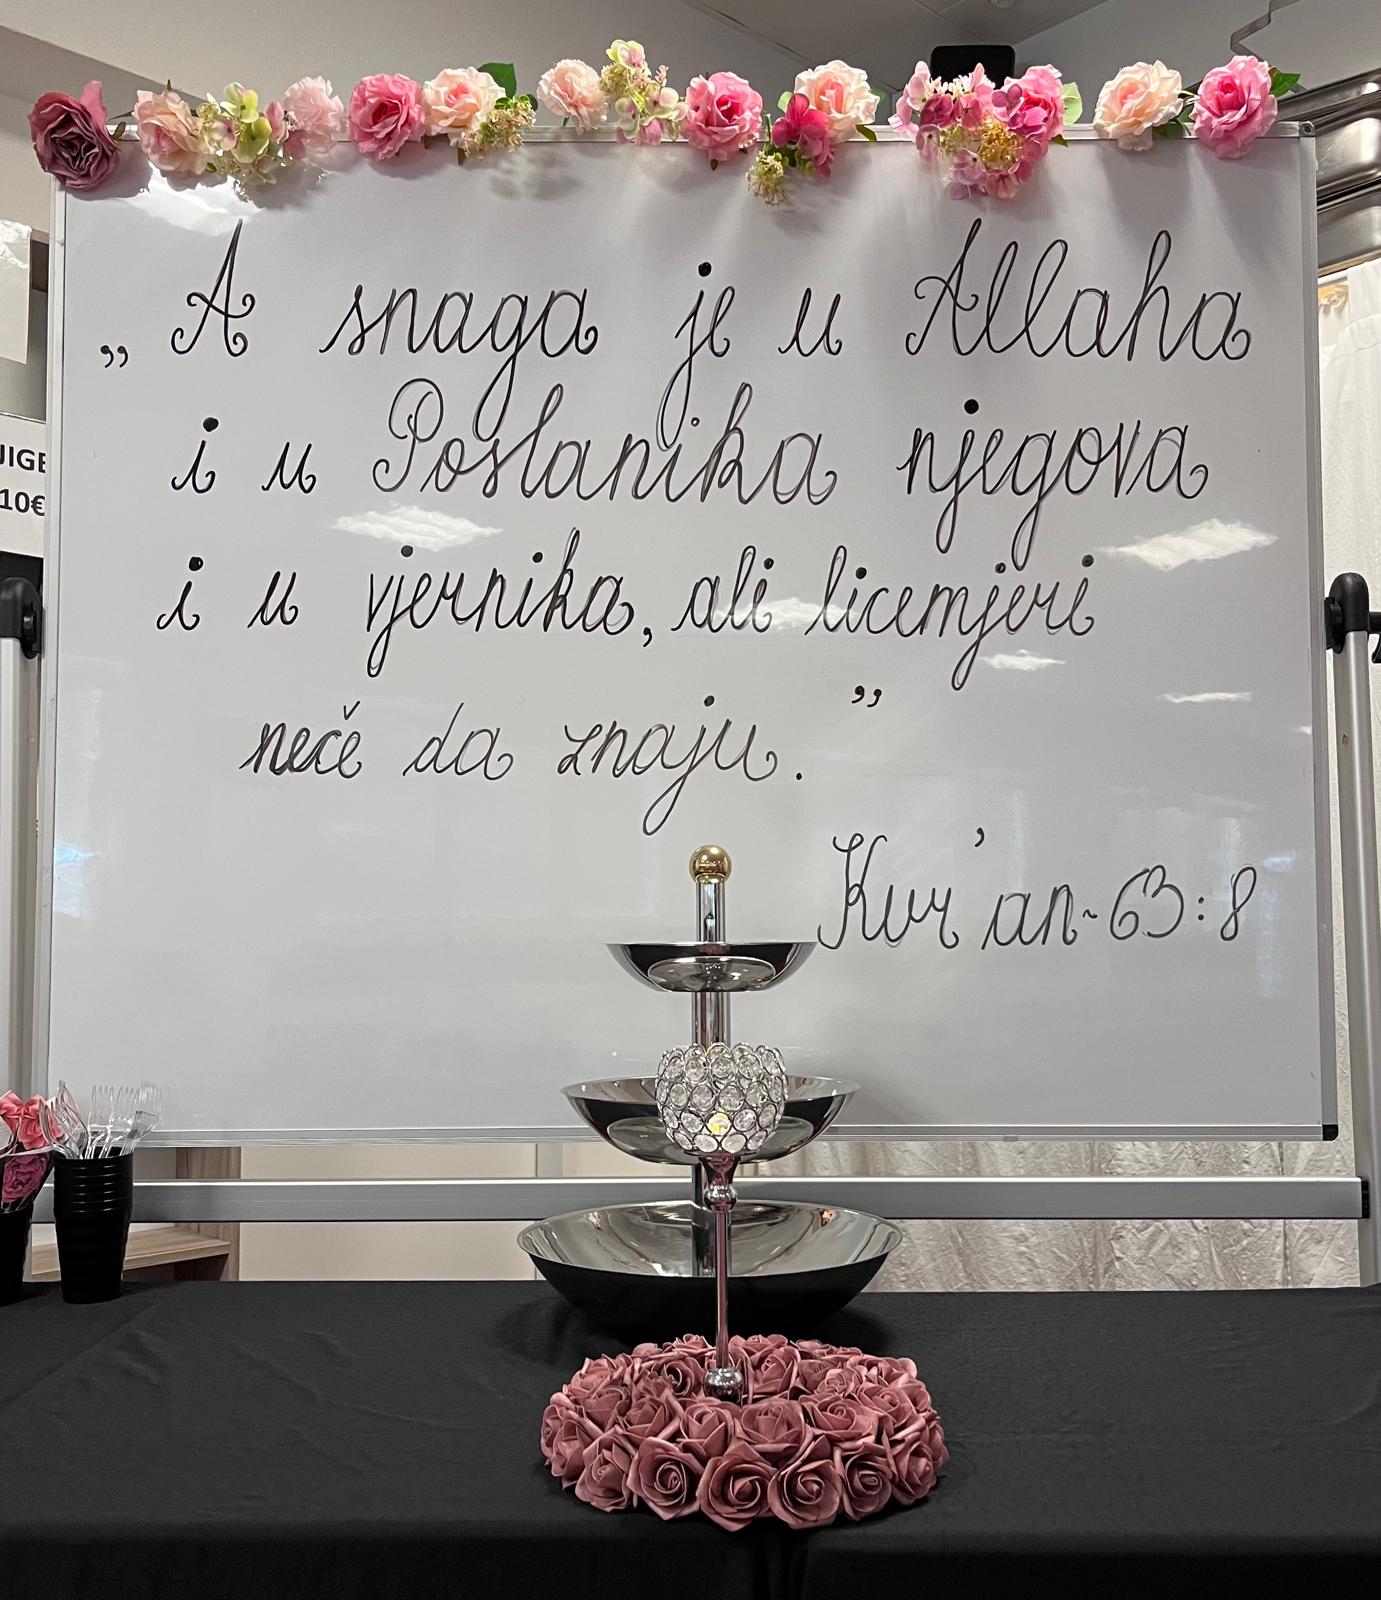 „A snaga je u Allaha
i u Poslanika njegova
i u vjernika, ali licemjeri
neče da znaju.”
Kur'an~63:8
10€